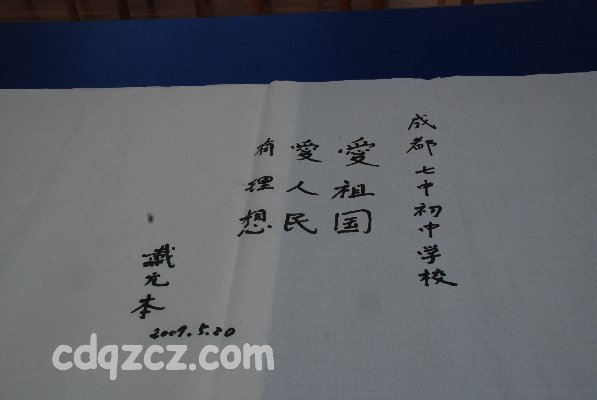 成都七中初中学校
愛祖国
愛人民
有理想
戴元本
2009.5.20
cdqzcz.com